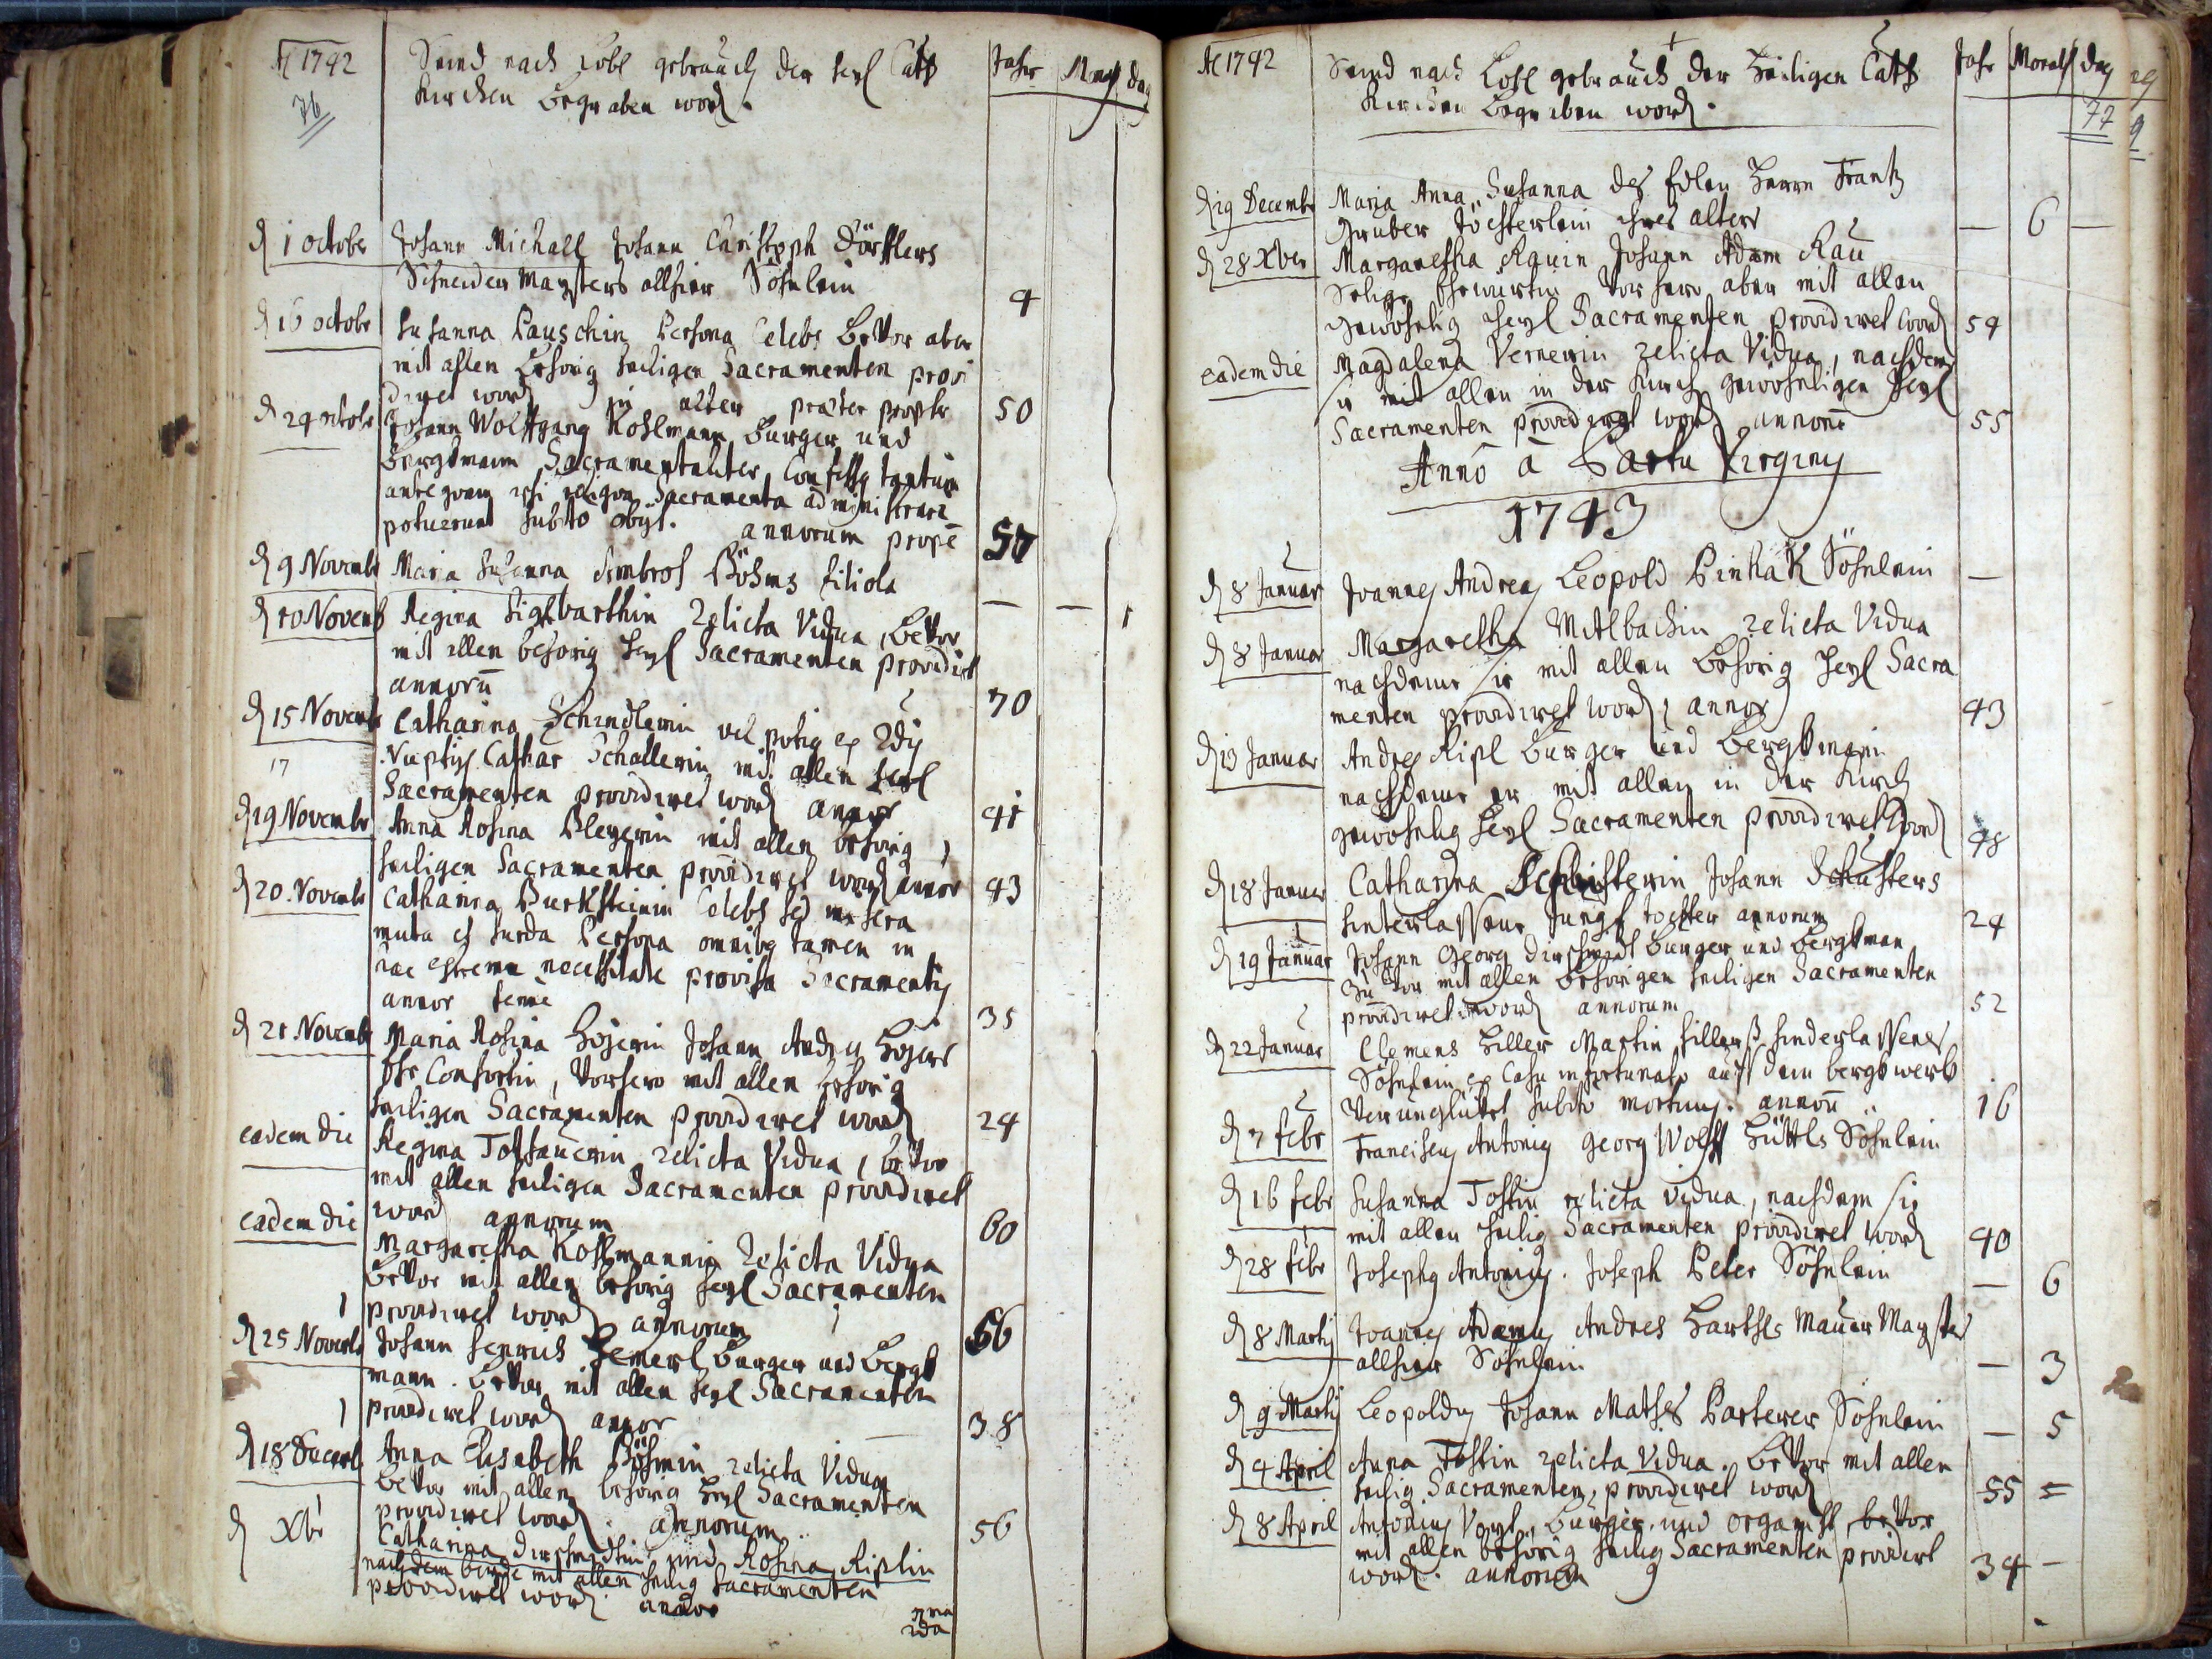 A 1742
Seind nach Lobl gebrauch der heyl Cath
Kirchen begraben word.
Jahr Mon dag
76
d 1 october Johann Michall Johann Christoph Dörfflers
Schneider Maysters allhier Söhnlein 4
d 16 octobr Susanna Pauschin Persona Celebs bevor aber
mit allen behörig heiligen Sacramenten provi
diret word in alter præter propter 50
d 24 octobr Johann Wolffgang Kohlmann burger und
bergkmann Sacramentaliter Confessg tantum
antequam ipsi reliqua Sacramenta administrari
potuerunt subito obijt. annorum prope 57
d 9 Novembr Maria Susanna Ambros Böhms filiola
— — 1
d 10 Novemb Regina Sigbarthin relicta Vidua, bevor
mit allen behörig heyl Sacramenten providirt
annorū 70
d 15 Novembr Catharina Schindlerin vel potig ex 2dis
Nuptijs Cathar Schallerin mit allen heyl
17
Sacramenten providiret word annor 41
d 19 Novembr Anna Rosina Pleyerin mit allen behörig
heiligen Sacramenten providiret word annor 43
d 20. Novembr Catharina Burkhsteinin Celebs sed misera
muta et surda Persona omnibg tamen in
hac extrema necessitate provisa Sacramentis
annor fenne 35
d 21 Novemb Maria Rosina Hojerin Johann Andrea Hojers
Ehe Consortin, Vorhero mit allen behörig
heiligen Sacramenten providiret word 24
eadem die Regina relicta Vidua, bevor
mit allen heiligen Sacramenten providiret
word annorum 60
eadem die Margaretha Kohlmannin relicta Vidua
bevor mit allen behörig heyl Sacramenten
providiret word annorum 56
d 25 Novembr Johann Henrich burger und bergk
mann. bevor mit allen heyl Sacramenten
providiret word annor 38
d 18 Decemb Anna Elisabeth Böhmin relicta Vidua
bevor mit allen behörig heyl Sacramenten
providiret word. annorum 56
d Xbr Catharina Dirschmidtin und Rosina Riplin
nachdem beyde mit allen heilig Sacramenten
providiret word. annor
1ma
2da
A 1742
Seind nach Lobl gebrauch der Heiligen Cath
Kirchen begraben word.
Jahr Monath dag
77
d 19 Decembr Maria Anna Susanna des Edlen Herrn Frantz
Gruber Töchterlein ihres alters — 6 —
d 28 Xber Margaretha Rauin Johann Adam Rau
Selige Ehewürtin Vorhero aber mit allen
gewöhnlig heyl Sacramenten providiret word 54
eadem die Magdalena Vernerin relicta Vidua, nachdem
sie mit allen in der Kirch gewöhnligen heyl
Sacramenten providiret word annorū 55
Anno a Partu Virginis
1743
d 8 Januar Joannes Andreas Leopold Pinhak Söhnlein —
d 8 Januar Margaretha Mitlbachin relicta Vidua
nachdeme sie mit allen behörig heyl Sacra
menten providiret word, annor 43
d 13 Januar Andres Ripl burger und bergkmann
nachdeme er mit allen in der Kirch
gewöhnlig heyl Sacramenten providiret word 48
d 18 Januar Catharina Schusterin Johann Schusters
hinterlassene Jungf tochter annorum 24
d 19 Januar Johann Georg Dirschmidt burger und bergkman
Zu vor mit allen behörigen heiligen Sacramenten
providiret word annorum 52
d 22 Januar Clemens Hiller Martin Hillers hinderlassenes
Söhnlein ex Casu infortunato auf dem bergkwerk
Verunglükt subito mortuus. annorū 16
d 7 febr Franciscus Antonius Georg Wolff Hüttls Söhnlein
d 16 febr Susanna Tostin relicta vidua, nachdem sie
mit allen heilig Sacramenten providiret word 40
d 28 febr Josephg Antonius. Joseph Peter Söhnlein — 6
d 8 Martij Joannes Adamus Andres Harthls Maurer Mayster
allhier Söhnlein — 3
d 9 Martij Leopoldus Johann Mathes Parterer Söhnlein — 5
d 4 April Anna Tostin relicta Vidua. bevor mit allen
heilig Sacramenten, providiret word 55 =
d 8 April Antonius Voyt, burger und organist bevor
mit allen behörig heilig Sacramenten providirt
word. annorum 34 —